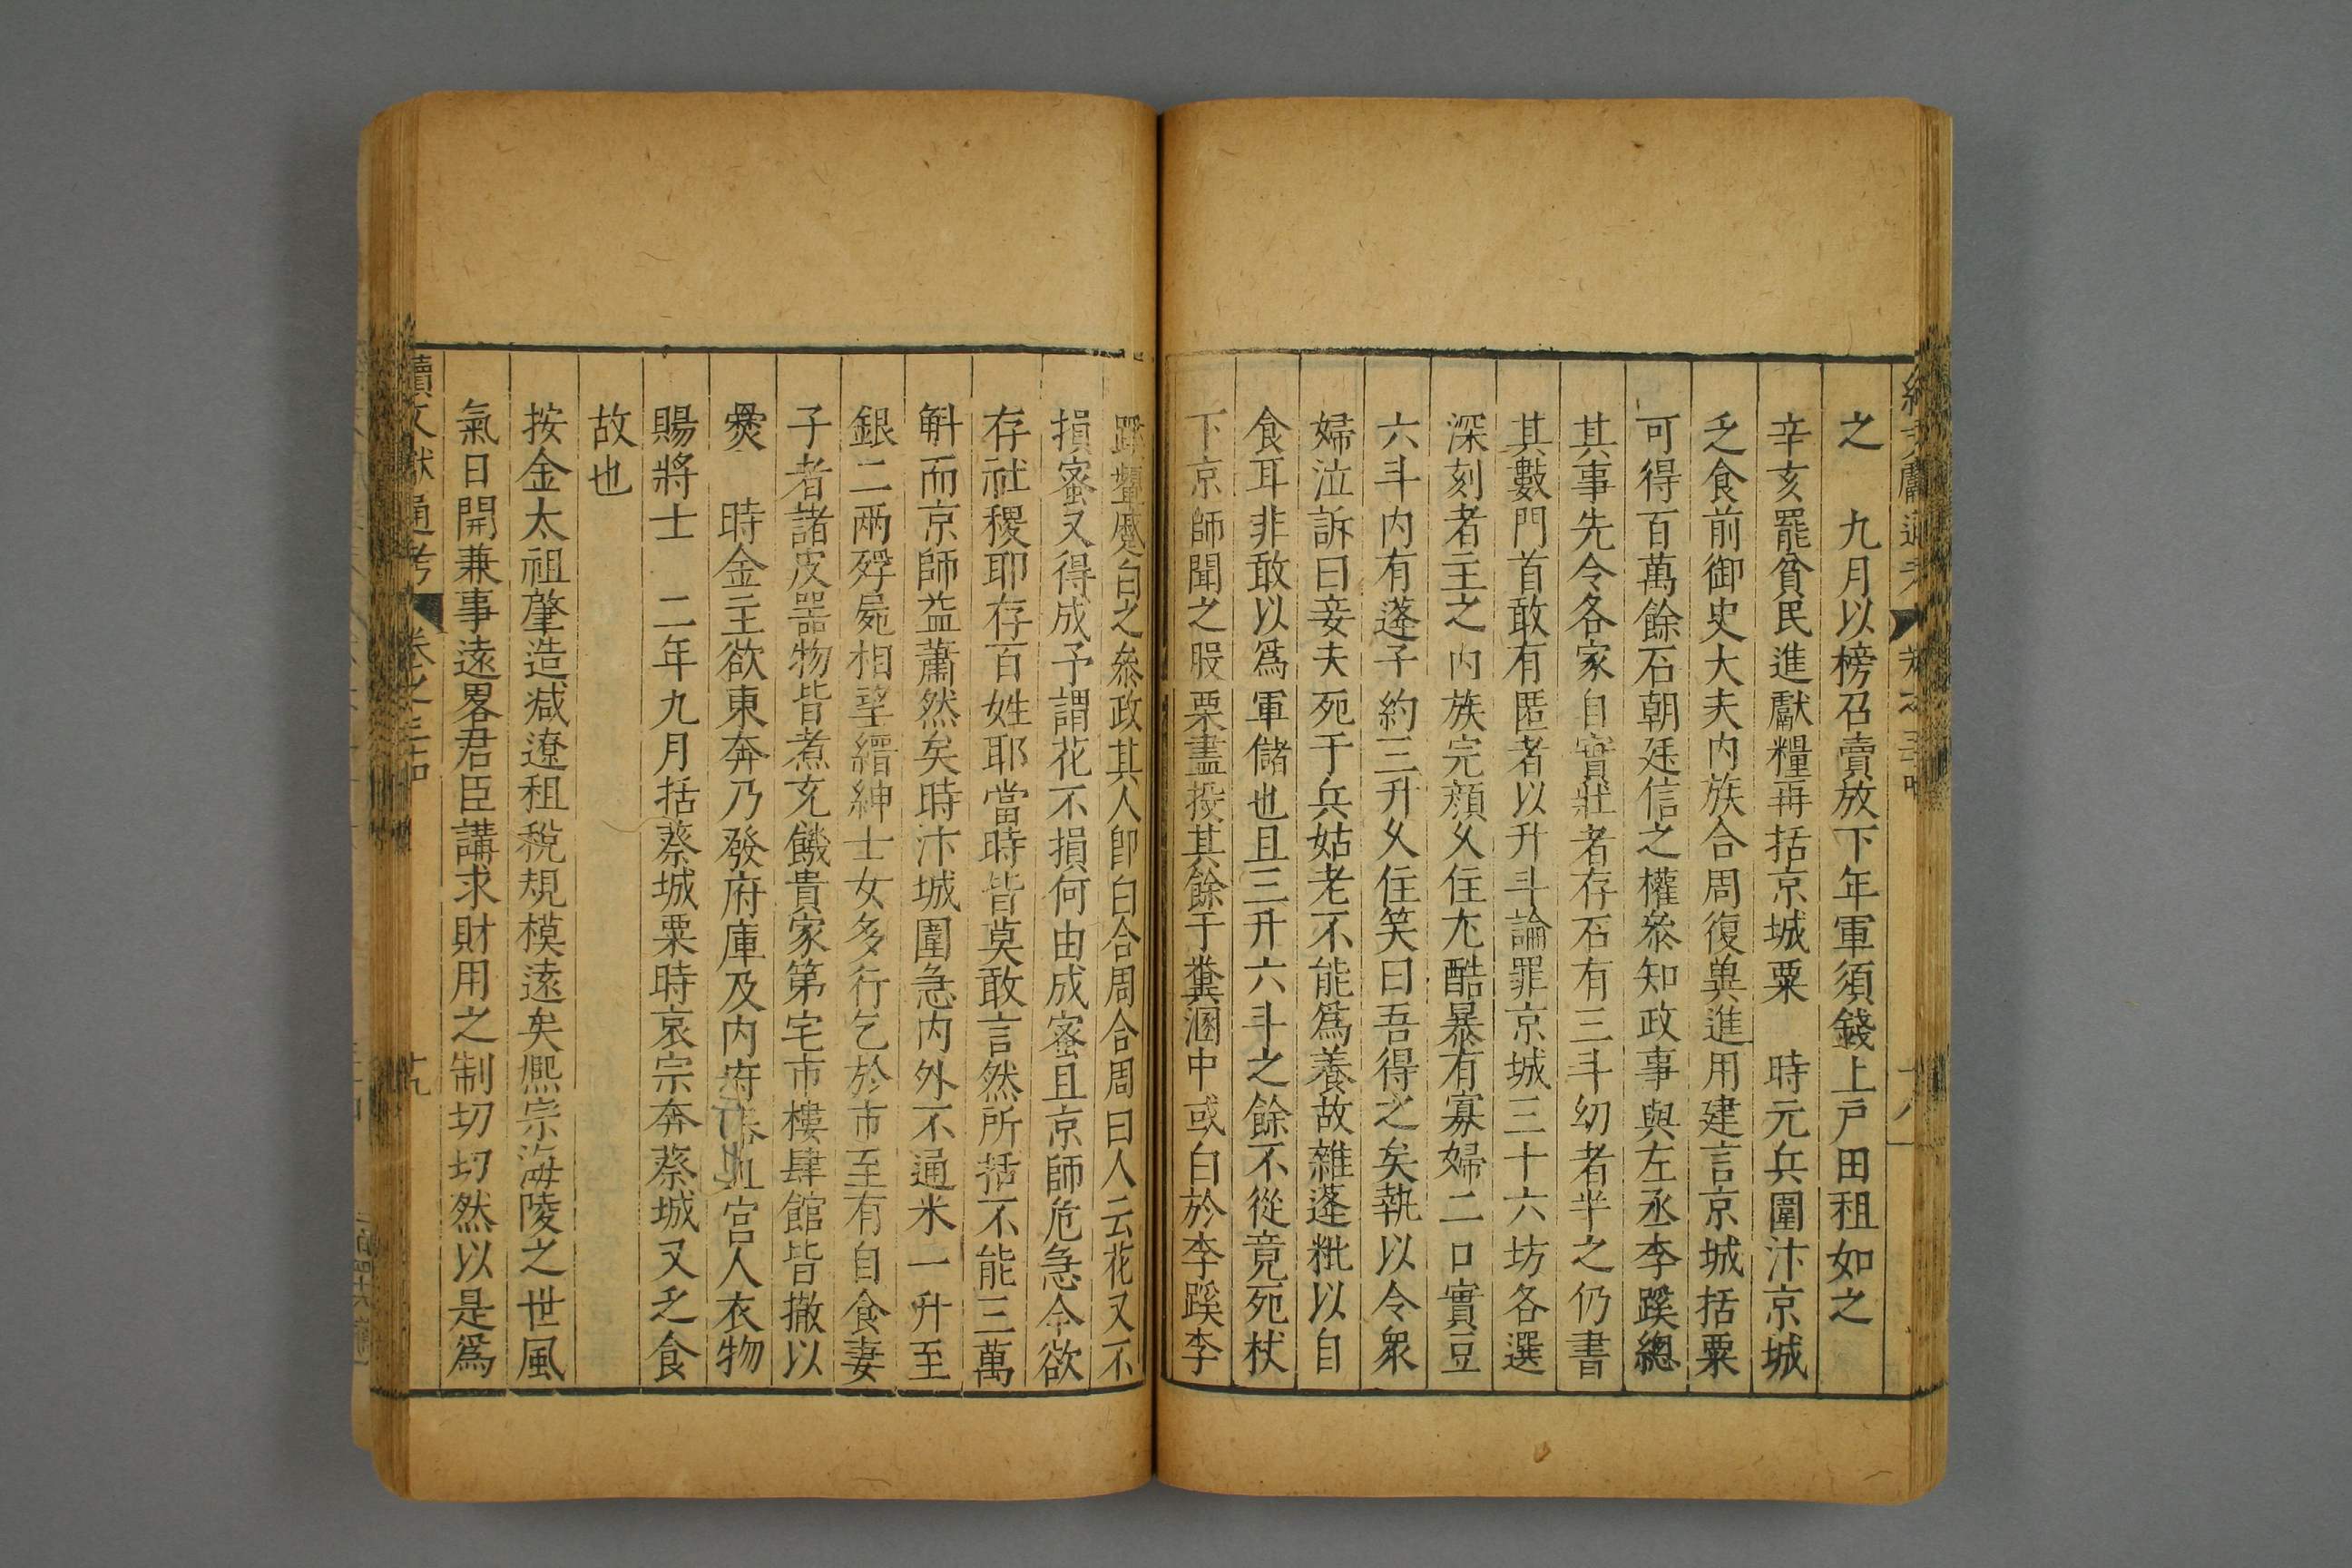 之　九月以榜召賣放下年軍須錢上戶田租如之
辛亥罷貧民進獻糧再括京城粟　時元兵圍汴京城
乏食前御史大夫内族合周復兾進用建言京城括粟
可得百萬餘石朝廷信之權叅知政事與左丞李蹊總
其事先令各家自實壯者存石有三斗幼者半之仍書
其數門首敢有匿者以升斗論罪京城三十六坊各選
深刻者主之内族完顔久住尤酷暴有寡婦二口實豆
六斗内有蓬子約三升久住笑曰吾得之矣執以令衆
婦泣訴曰妾夫死于兵姑老不能爲養故雜蓬粃以自
食耳非敢以爲軍儲也且三升六斗之餘不從竟死杖
下京師聞之股栗盡投其餘于糞溷中或白於李蹊李
蹊顰蹙白之叅政其人卽白合周合周曰人云花又不
損蜜又得成予謂花不損何由成蜜且京師危急今欲
存社稷耶存百姓耶當時皆莫敢言然所括不能三萬
斛而京師益蕭然矣時汴城圍急内外不通米一升至
銀二兩殍屍相望縉紳士女多行乞於市至有自食妻
子者諸皮器物皆煮充饑貴家第宅市樓肆館皆撤以
爨　時金主欲東奔乃發府庫及内府宮人衣物
賜將士　二年九月括蔡城粟時哀宗奔蔡城又乏食
故也
按金太祖肇造减遼租稅規模遠矣熈宗海陵之世風
氣日開兼事遠畧君臣講求財用之制切切然以是爲
續文獻通考　卷之三　十九